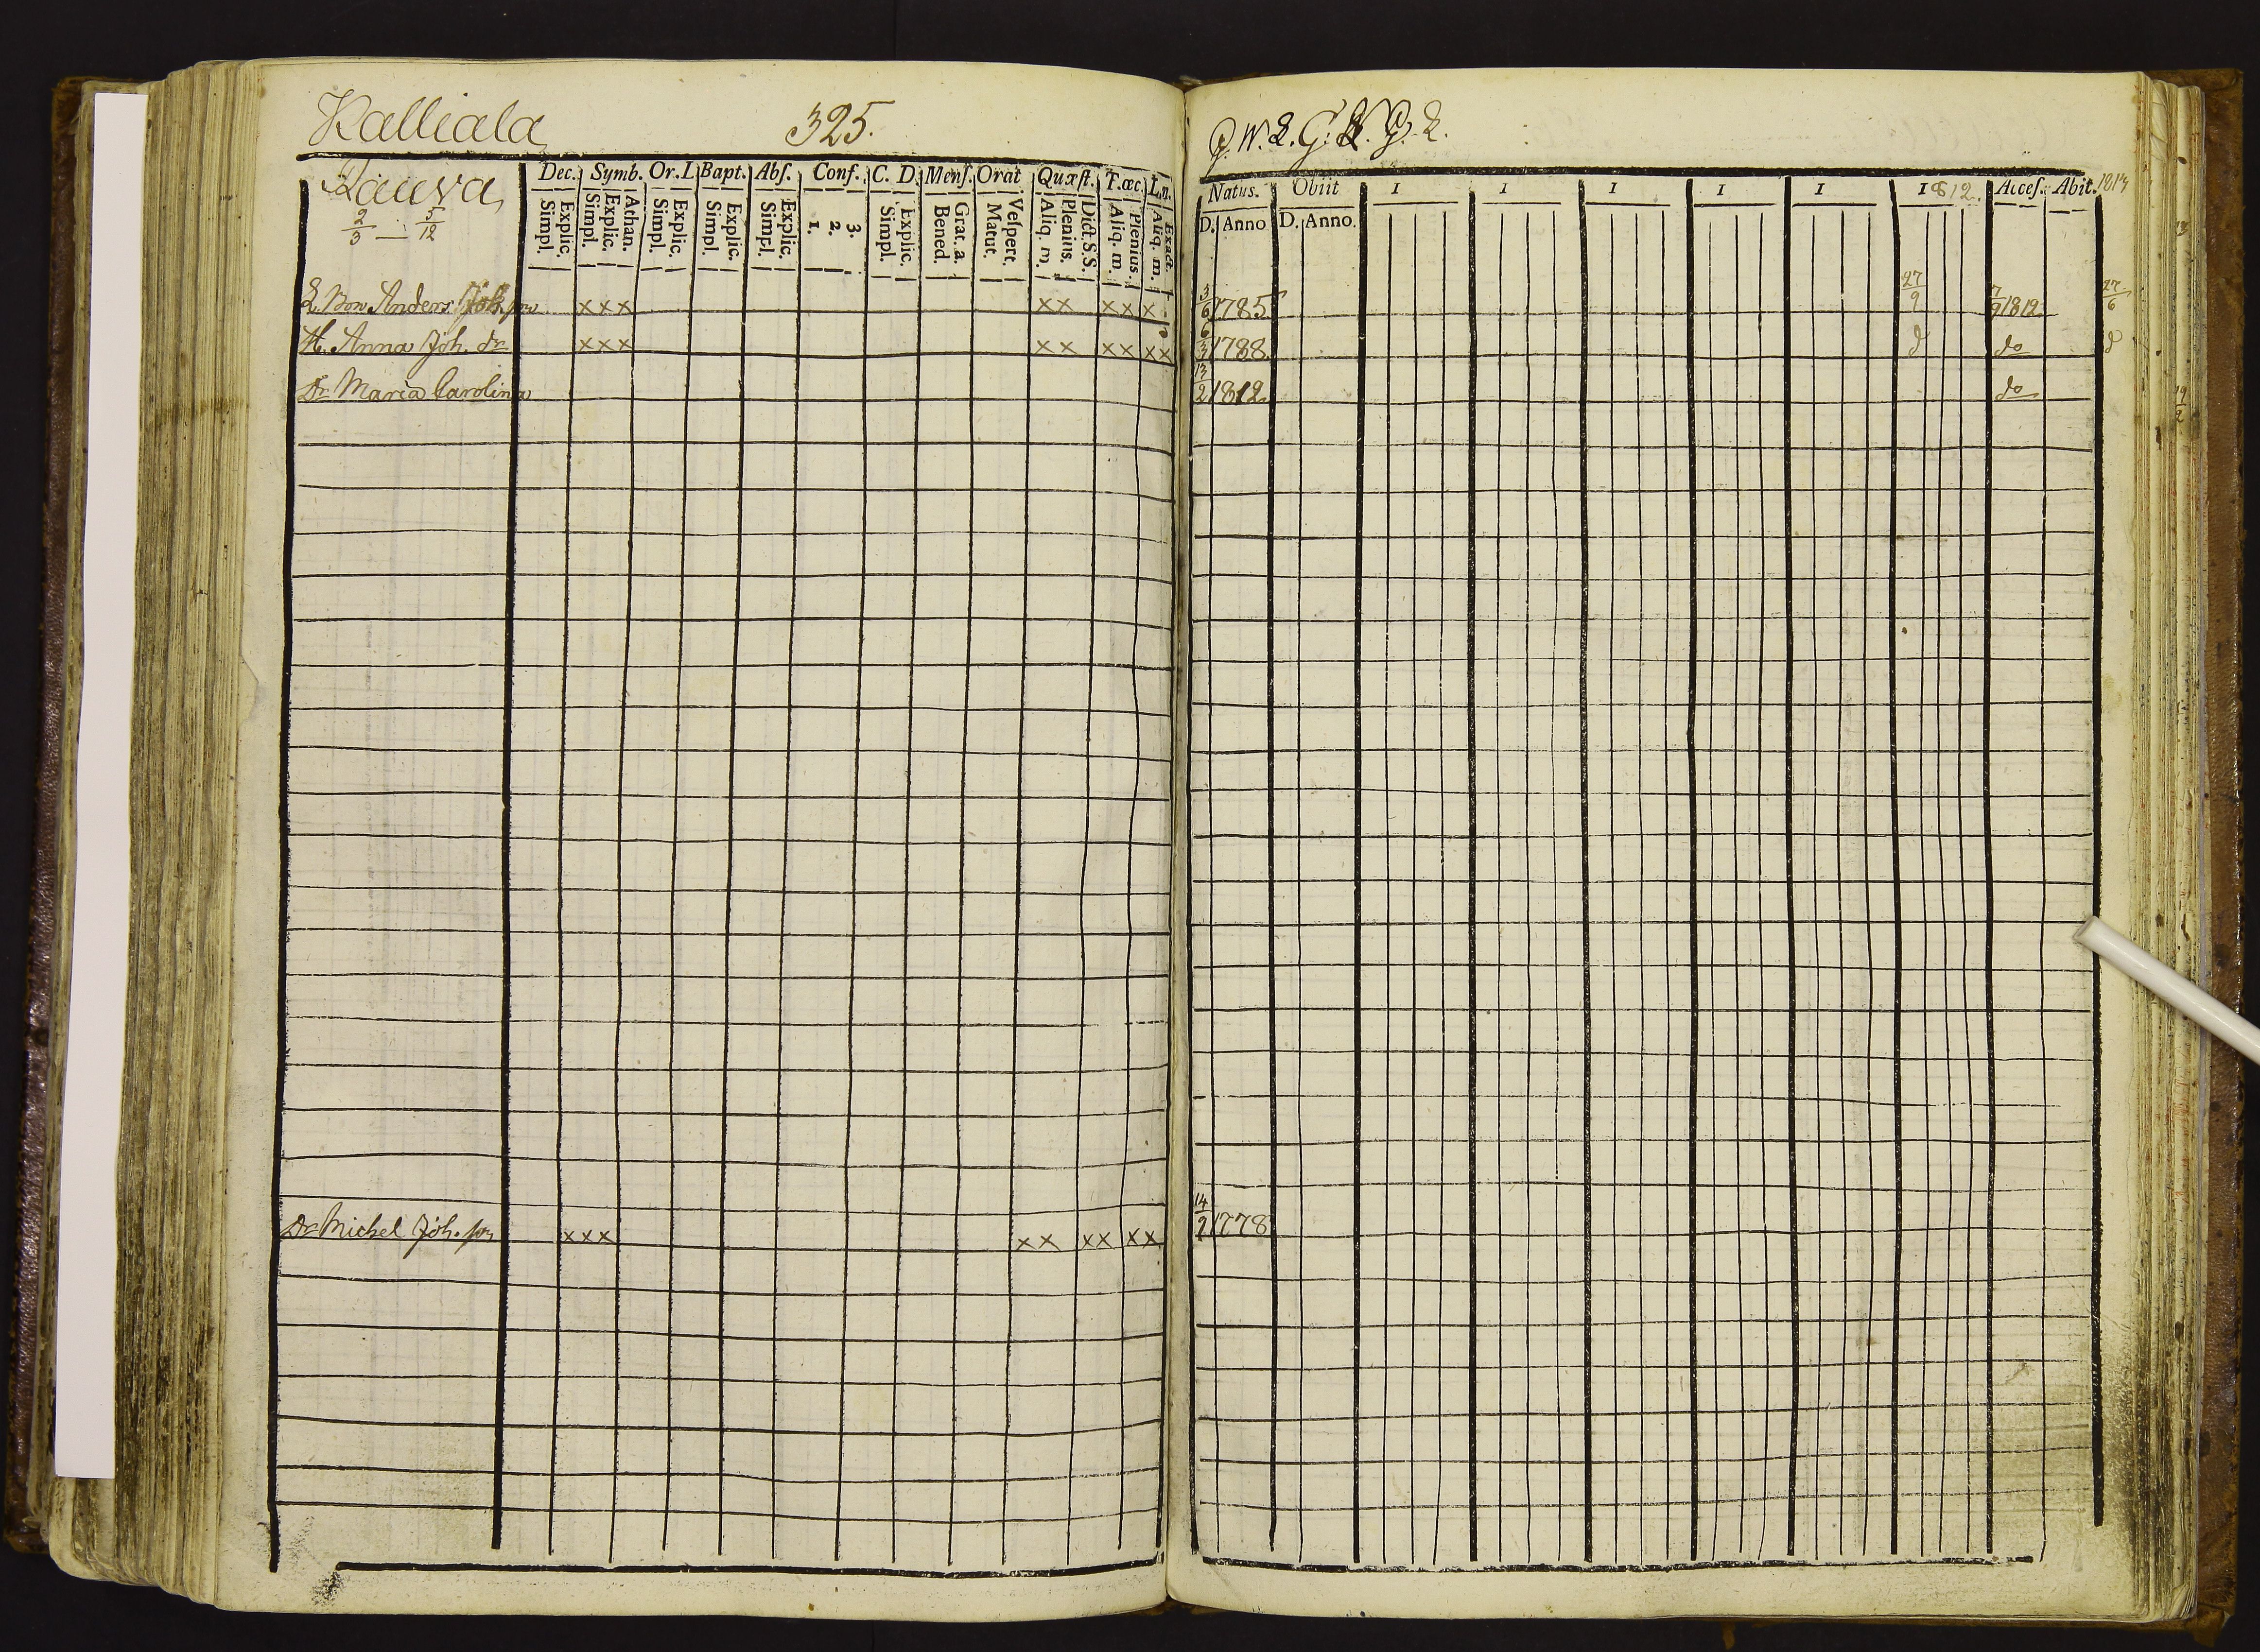 Kalliala 325.
Rauva
2/3 — 5/12
Dec. Symb. Or. D. Bapt. Abs. Conf. C. D. Menſ. Orat Quæſt. T.œc. L.n.
Explic. Simpl. Athan. Explic. Simpl. Explic. Simpl. Explic. Simpl. Explic. Simpl. 3. 2. 1. Explic. Simpl. Grat. a. Bened. Veſpert. Matut. Dict. S.S. Plenius. Aliq. m. Plenius. Aliq. m. Exact. Aliq. m.
Anders Joh. son xxx xx xx x
H. Anna Joh. dr xxx xx xx xx
Dr Maria Carolina
Dr Michel Joh. son xxx xx xx xx
Natus. Obiit 1 1 1 1 1 1812. Acceſ. Abit. 1813
D. Anno D. Anno.
3/6 1785 27/9 7/9 1812 27/6
6/3 1788 d do d
13/2 1812 do
14/9 1778